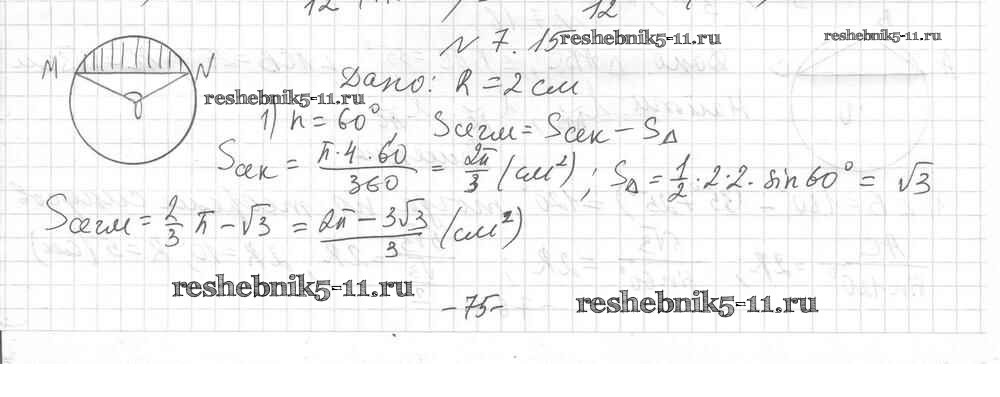 12 12
№ 7.15 reshebnik5-11.ru reshebnik5-11.ru
M N O
Дано: R = 2 см
reshebnik5-11.ru
1) n = 60°, Sсегм = Sсек − S△
Sсек = π·4·60/360 = 2π/3 (см²); S△ = 1/2·2·2·sin60° = √3
Sсегм = 2/3 π − √3 = (2π − 3√3)/3 (см²)
reshebnik5-11.ru −75− reshebnik5-11.ru